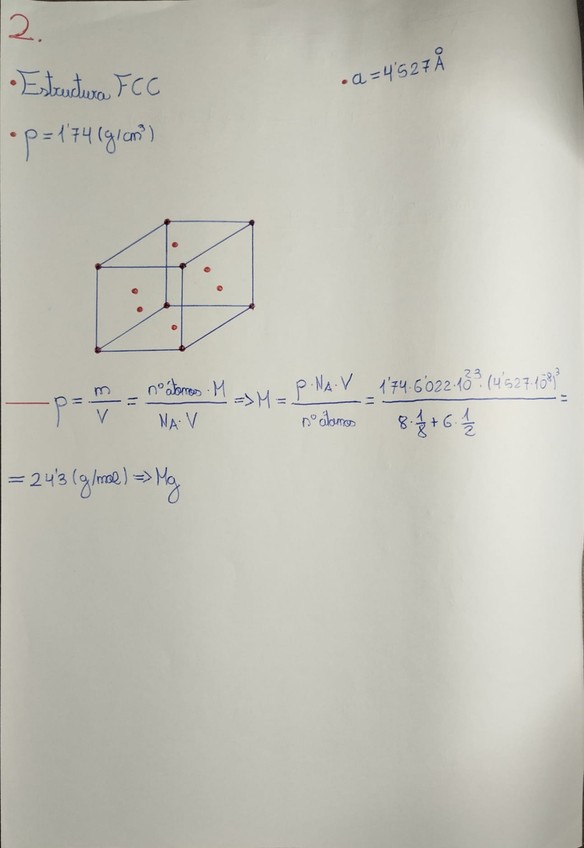 2.
• Estructura FCC
• a = 4'527 Å
• ρ = 1'74 (g/cm³)
ρ = m/V = nº átomos · M / N_A · V => M = ρ · N_A · V / nº átomos = 1'74 · 6'022 · 10²³ · (4'527 · 10⁻⁸)³ / 8 · 1/8 + 6 · 1/2 =
= 24'3 (g/mol) => Mg